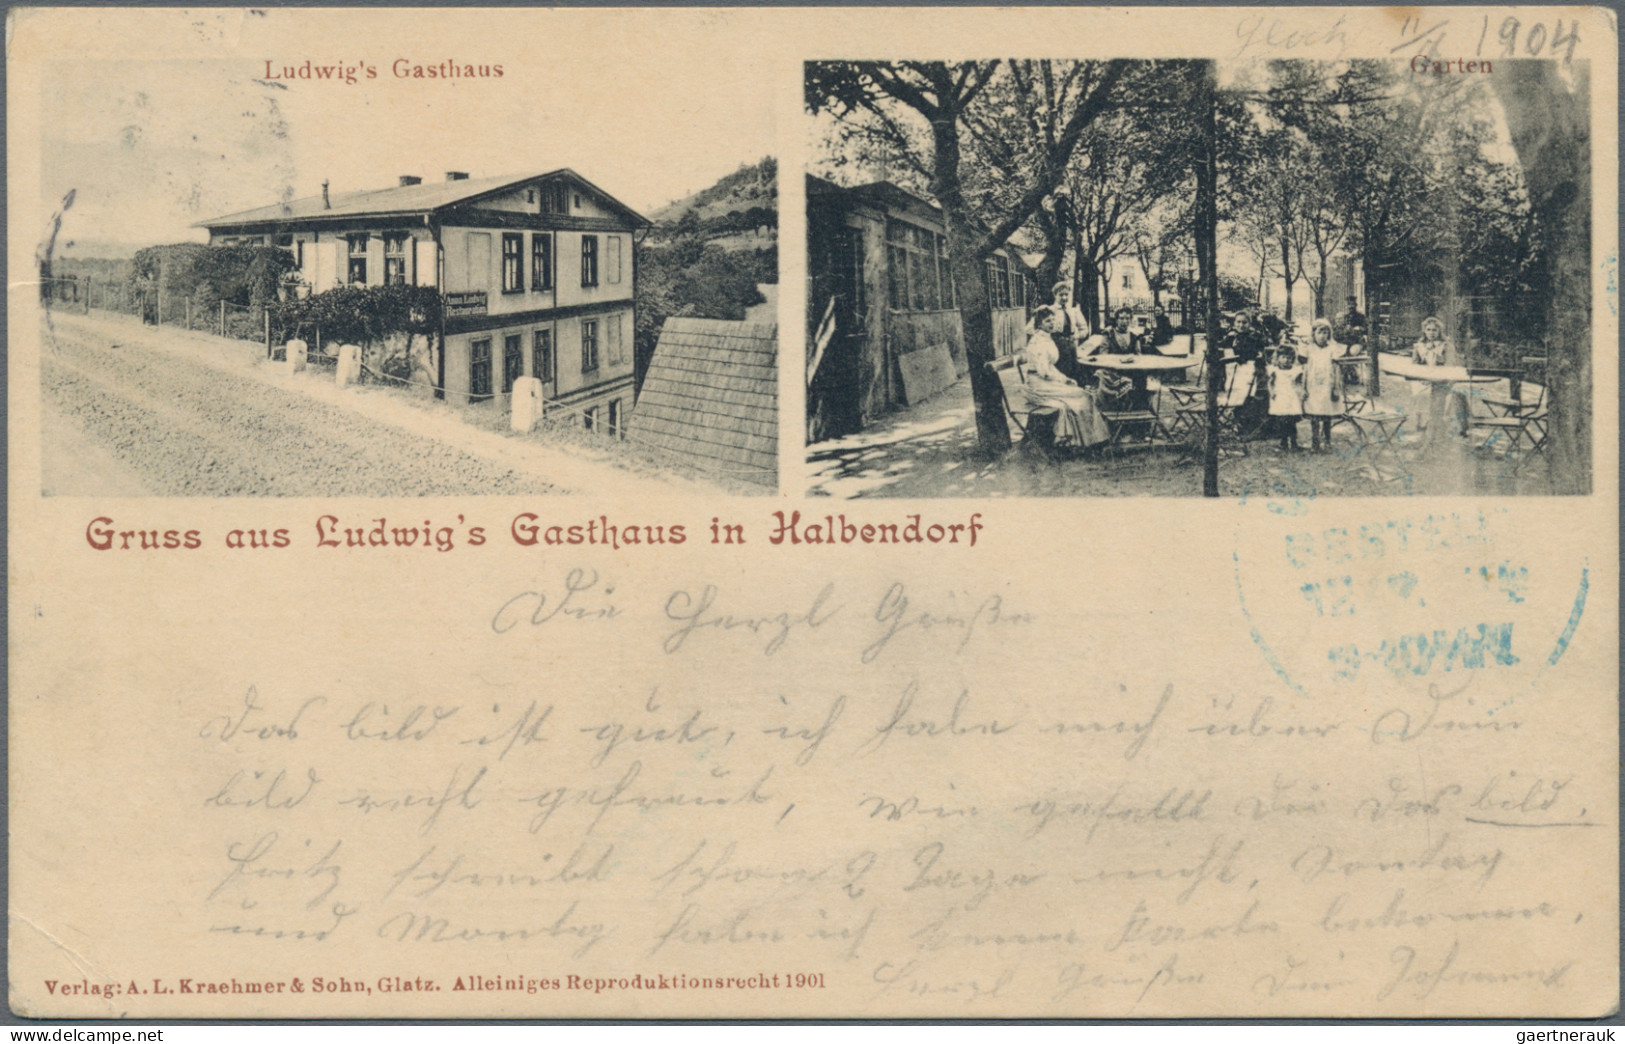 Glatz 11/7 1904
Ludwig's Gasthaus
Garten
Anna Ludwig
Restauration
Gruss aus Ludwig's Gasthaus in Halbendorf
BESTELL
Die Herzl Grüße
Das bild ist gut, ich habe mich über Dein
bild recht gefreut, wie gefällt Dir das bild.
Fritz schreibt schon 2 Tage nicht, Sontag
und Montag habe ich keine Karte bekomme,
Herzl Grüße Dein
Verlag: A. L. Kraehmer & Sohn, Glatz. Alleiniges Reproduktionsrecht 1901
www.delcampe.net
gaertnerauk